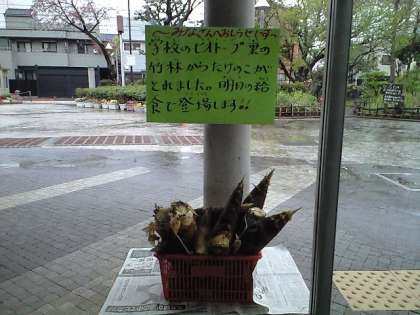 〜みなさんへおしらせです〜
学校のビオトープ裏の
竹林からたけのこが
とれました。明日の給
食で登場します!!